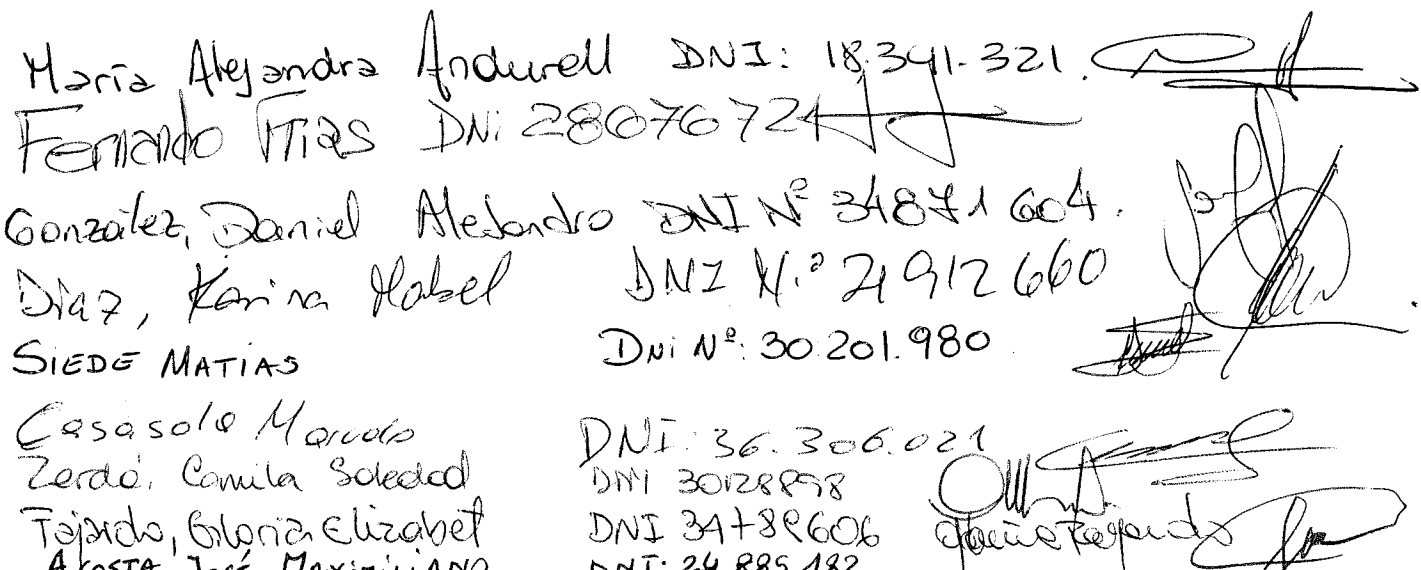 María Alejandra Andurell DNI: 18.341.321.
Fernando Frias DNi 28676724
González, Daniel Alejandro DNI Nº 34871604.
Diaz, Karina Mabel DNI N.º 21912660
SIEDE MATIAS DNi Nº: 30.201.980
Casasola Marcelo DNI: 36.306.021
Zerdá, Camila Soledad DNI 30128898
Fajardo, Gloria Elizabet DNI 34789606 Fajardo
ACOSTA José MAXIMILIANO DNI: 24.885.182